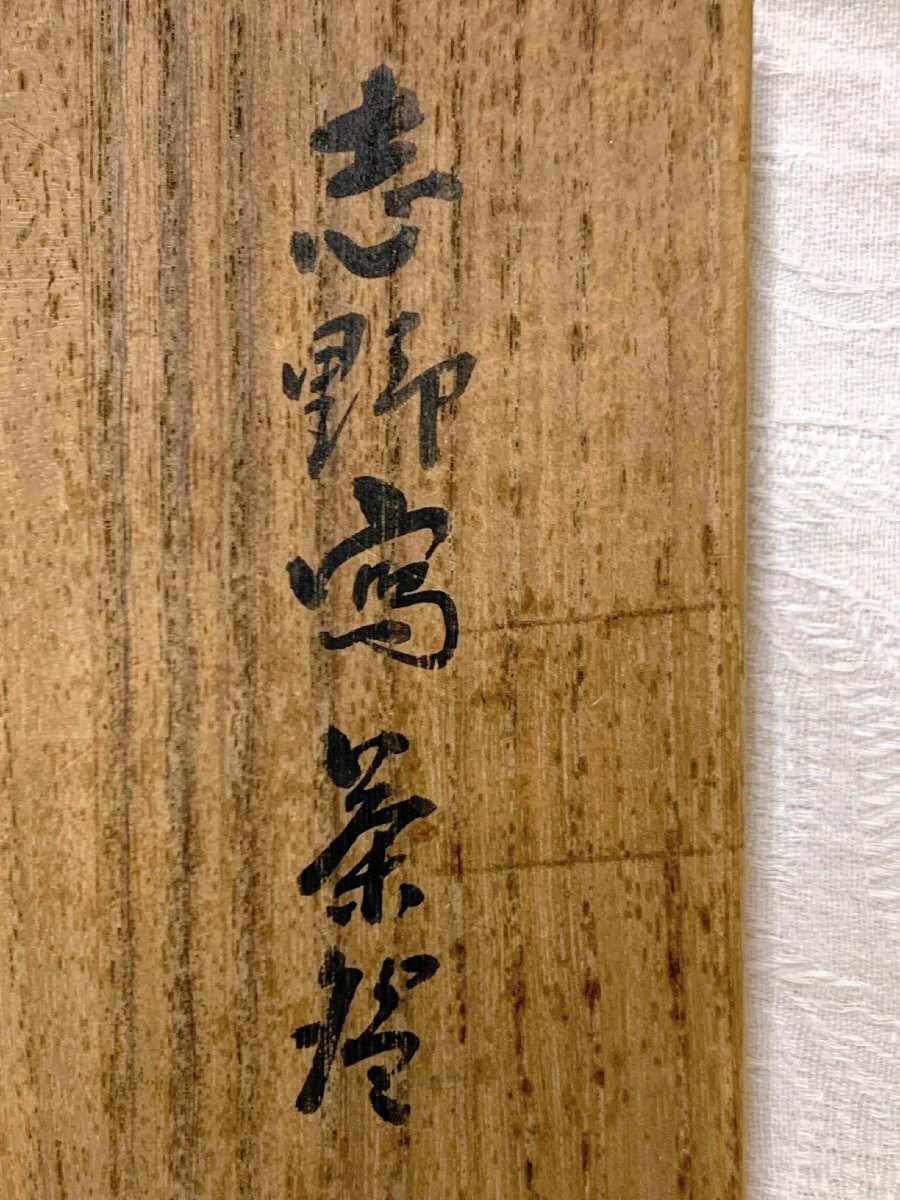 志野寫茶碗